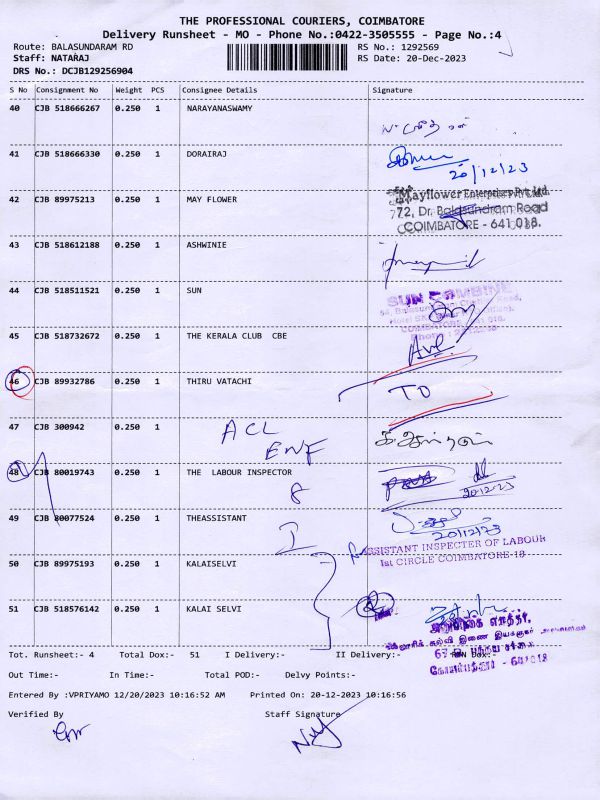 THE PROFESSIONAL COURIERS, COIMBATORE
Delivery Runsheet - MO - Phone No.:0422-3505555 - Page No.:4
Route: BALASUNDARAM RD RS No.: 1292569
Staff: NATARAJ RS Date: 20-Dec-2023
DRS No.: DCJB129256904
S No Consignment No Weight PCS Consignee Details Signature
40 CJB 518666267 0.250 1 NARAYANASWAMY
41 CJB 518666330 0.250 1 DORAIRAJ
20/12/23
42 CJB 89975213 0.250 1 MAY FLOWER
Mayflower Enterprises Pvt. Ltd.
72, Dr. Balasundram Road
COIMBATORE - 641 018.
43 CJB 518612188 0.250 1 ASHWINIE
44 CJB 518511521 0.250 1 SUN
SUN COMBINE
45 CJB 518732672 0.250 1 THE KERALA CLUB CBE
46 CJB 89932786 0.250 1 THIRU VATACHI
TO
47 CJB 300942 0.250 1
ACL
ENF
48 CJB 80019743 0.250 1 THE LABOUR INSPECTOR
8
20.12.23
49 CJB 80077524 0.250 1 THEASSISTANT
I
20/12/23
ASSISTANT INSPECTER OF LABOUR
1st CIRCLE COIMBATORE-18
50 CJB 89975193 0.250 1 KALAISELVI
51 CJB 518576142 0.250 1 KALAI SELVI
கல்வி இணை இயக்குநர்
கோயம்புத்தூர் - 641018
Tot. Runsheet:- 4 Total Dox:- 51 I Delivery:- II Delivery:- Dox:-
Out Time:- In Time:- Total POD:- Delvy Points:-
Entered By :VPRIYAMO 12/20/2023 10:16:52 AM Printed On: 20-12-2023 10:16:56
Verified By Staff Signature